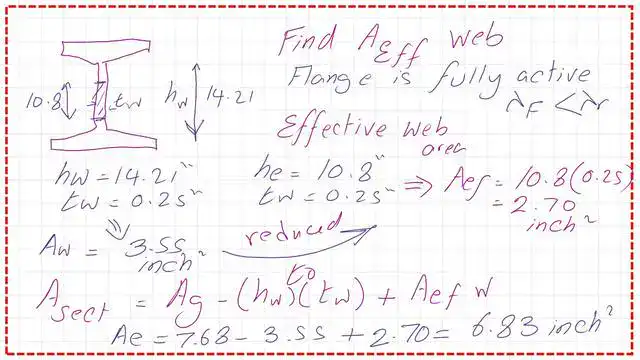 Find AEff web
Flange is fully active
λF < λr
10.8 tw hw 14.21
Effective web
area
hw = 14.21" he = 10.8" ⇒ Aef = 10.8(0.25)
tw = 0.25" tw = 0.25" = 2.70
inch²
Aw = 3.55 reduced
inch² to
Asect = Ag - (hw)(tw) + Aef w
Ae = 7.68 - 3.55 + 2.70 = 6.83 inch²